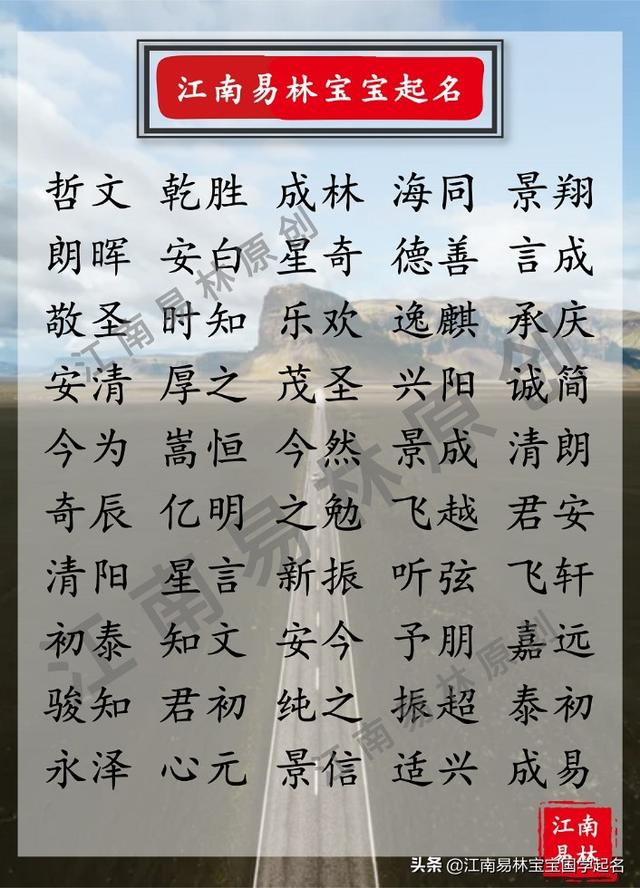 江南易林宝宝起名
哲文 乾胜 成林 海同 景翔
朗晖 安白 星奇 德善 言成
敬圣 时知 乐欢 逸麒 承庆
安清 厚之 茂圣 兴阳 诚简
今为 嵩恒 今然 景成 清朗
奇辰 亿明 之勉 飞越 君安
清阳 星言 新振 听弦 飞轩
初泰 知文 安今 予朋 嘉远
骏知 君初 纯之 振超 泰初
永泽 心元 景信 适兴 成易
江南易林原创
江南易林原创
江南易林原创
江南
易林
头条 @江南易林宝宝国学起名